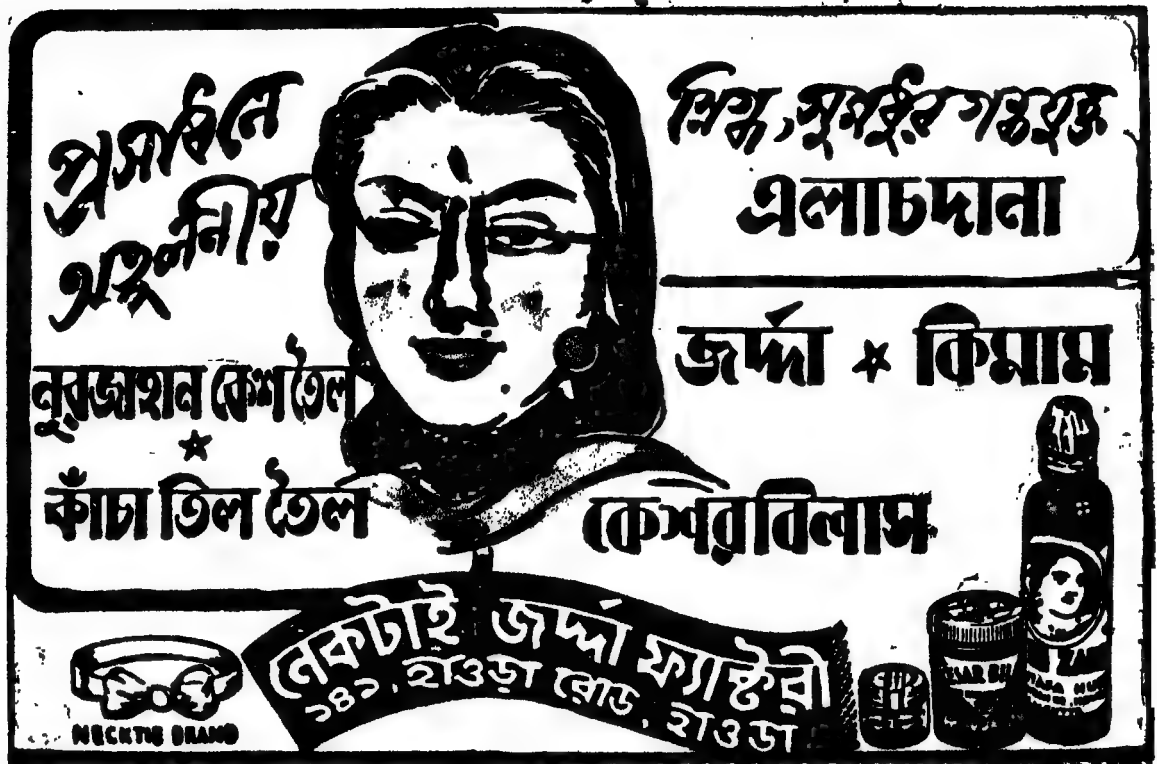 প্রসাধনে
অতুলনীয়
নুরজাহান কেশ তৈল
কাঁচা তিল তৈল
স্নিগ্ধ, সুমধুর গন্ধযুক্ত
এলাচদানা
জর্দ্দা ★ কিমাম
কেশরবিলাস
নেকটাই জর্দ্দা ফ্যাক্টরী
১৪১, হাওড়া রোড, হাওড়া
NECKTIE BRAND